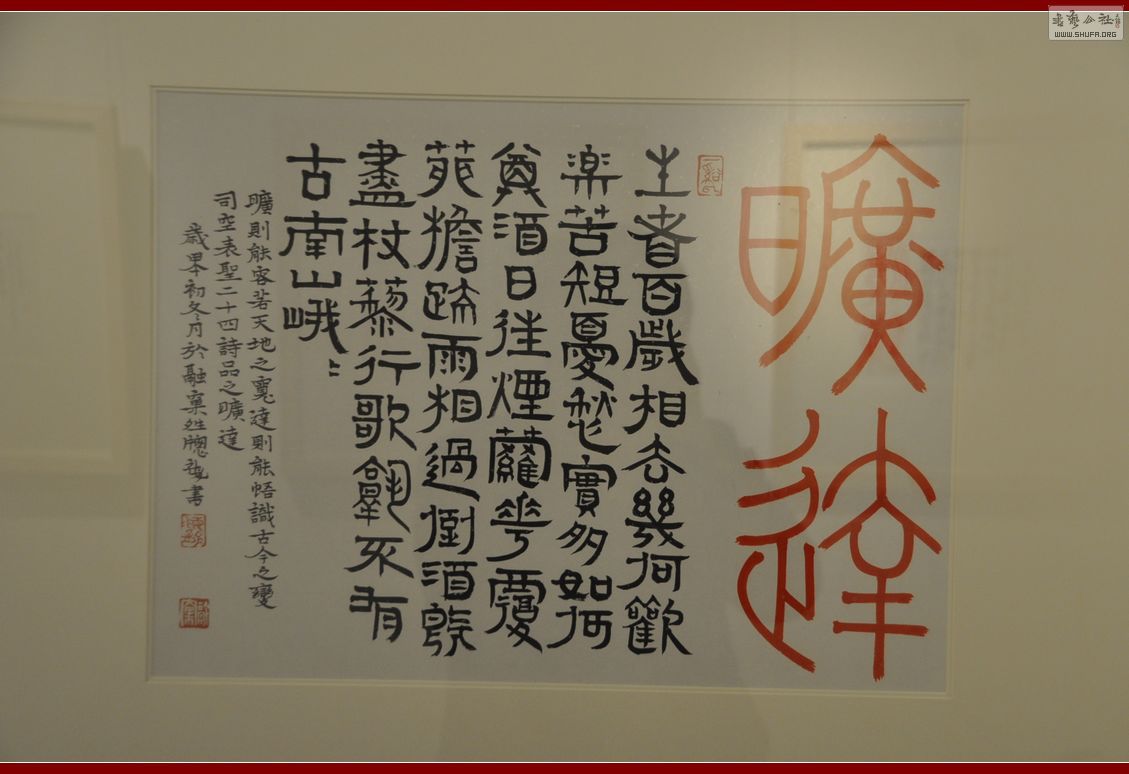 曠達
生者百歲相去幾何歡
楽苦短憂愁實多如何
尊酒日往煙蘿花覆
茆檐疏雨相過倒酒既
盡杖藜行歌孰不有
古南山峨〻
曠則能容若天地之寬達則能悟識古今之變
司空表聖二十四詩品之曠達
歲甲初冬月於融
書
書藝公社
WWW.SHUFA.ORG